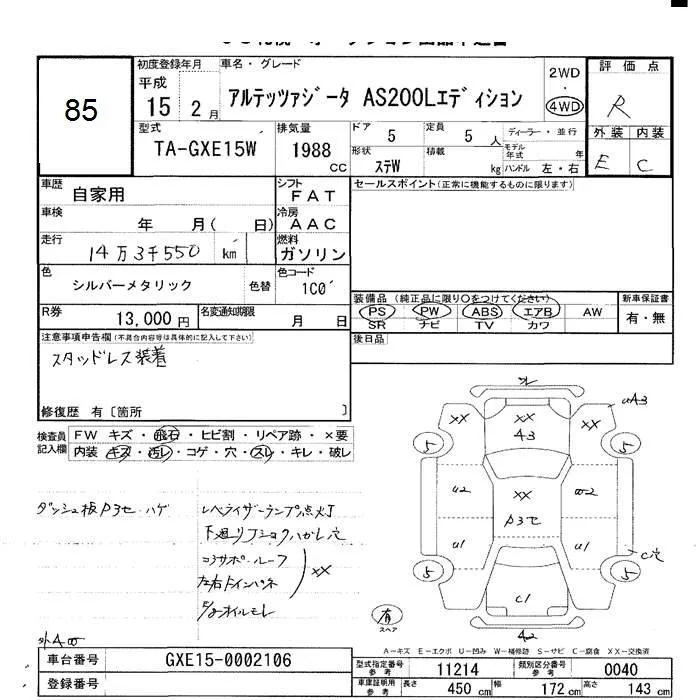 85
初度登録年月
平成
15 2月
車名・グレード
アルテッツァジータ AS200Lエディション
2WD
・
4WD
評価点
R
型式
TA-GXE15W
排気量
1988
CC
ドア
5
定員
5 人
ディーラー・並行
形状
ステW
積載
kg
モデル年式
年
ハンドル 左・右
外装 内装
E C
車歴
自家用
シフト
FAT
セールスポイント(正常に機能するものに限ります)
車検
年 月( 日)
冷房
AAC
走行
14万3千550 km
燃料
ガソリン
色
シルバーメタリック
色替
色コード
1C0
装備品 (純正品に限り○をつけてください)
新車保証書
PS PW ABS エアB AW
有・無
SR ナビ TV カワ
R券
13,000円
名変通知期限
月 日
後日品
注意事項申告欄(不具合内容等は具体的に記入して下さい)
スタッドレス装着
修復歴 有〔箇所 〕
検査員
記入欄
FW キズ・飛石・ヒビ割・リペア跡・×要
内装 キズ・汚レ・コゲ・穴・スレ・キレ・破レ
ダッシュ板P3セ・ハゲ
レベライザーランプ点灯
下廻リ
コアサポ・ルーフ
左右
オイルモレ
XX
XX
XX
A3
XX
uA3
5
5
u2
XX
P3セ
w2
u1
u1
C穴
5
5
C1
A2
有
スペア
外A
A-キズ E-エクボ U-凹み W-補修跡 S-サビ C-腐食 XX-交換済
車台番号
GXE15-0002106
型式指定番号
参考
11214
類別区分番号
参考
0040
登録番号
車庫証明用
参考
長さ 450 cm 幅 172 cm 高さ 143 cm